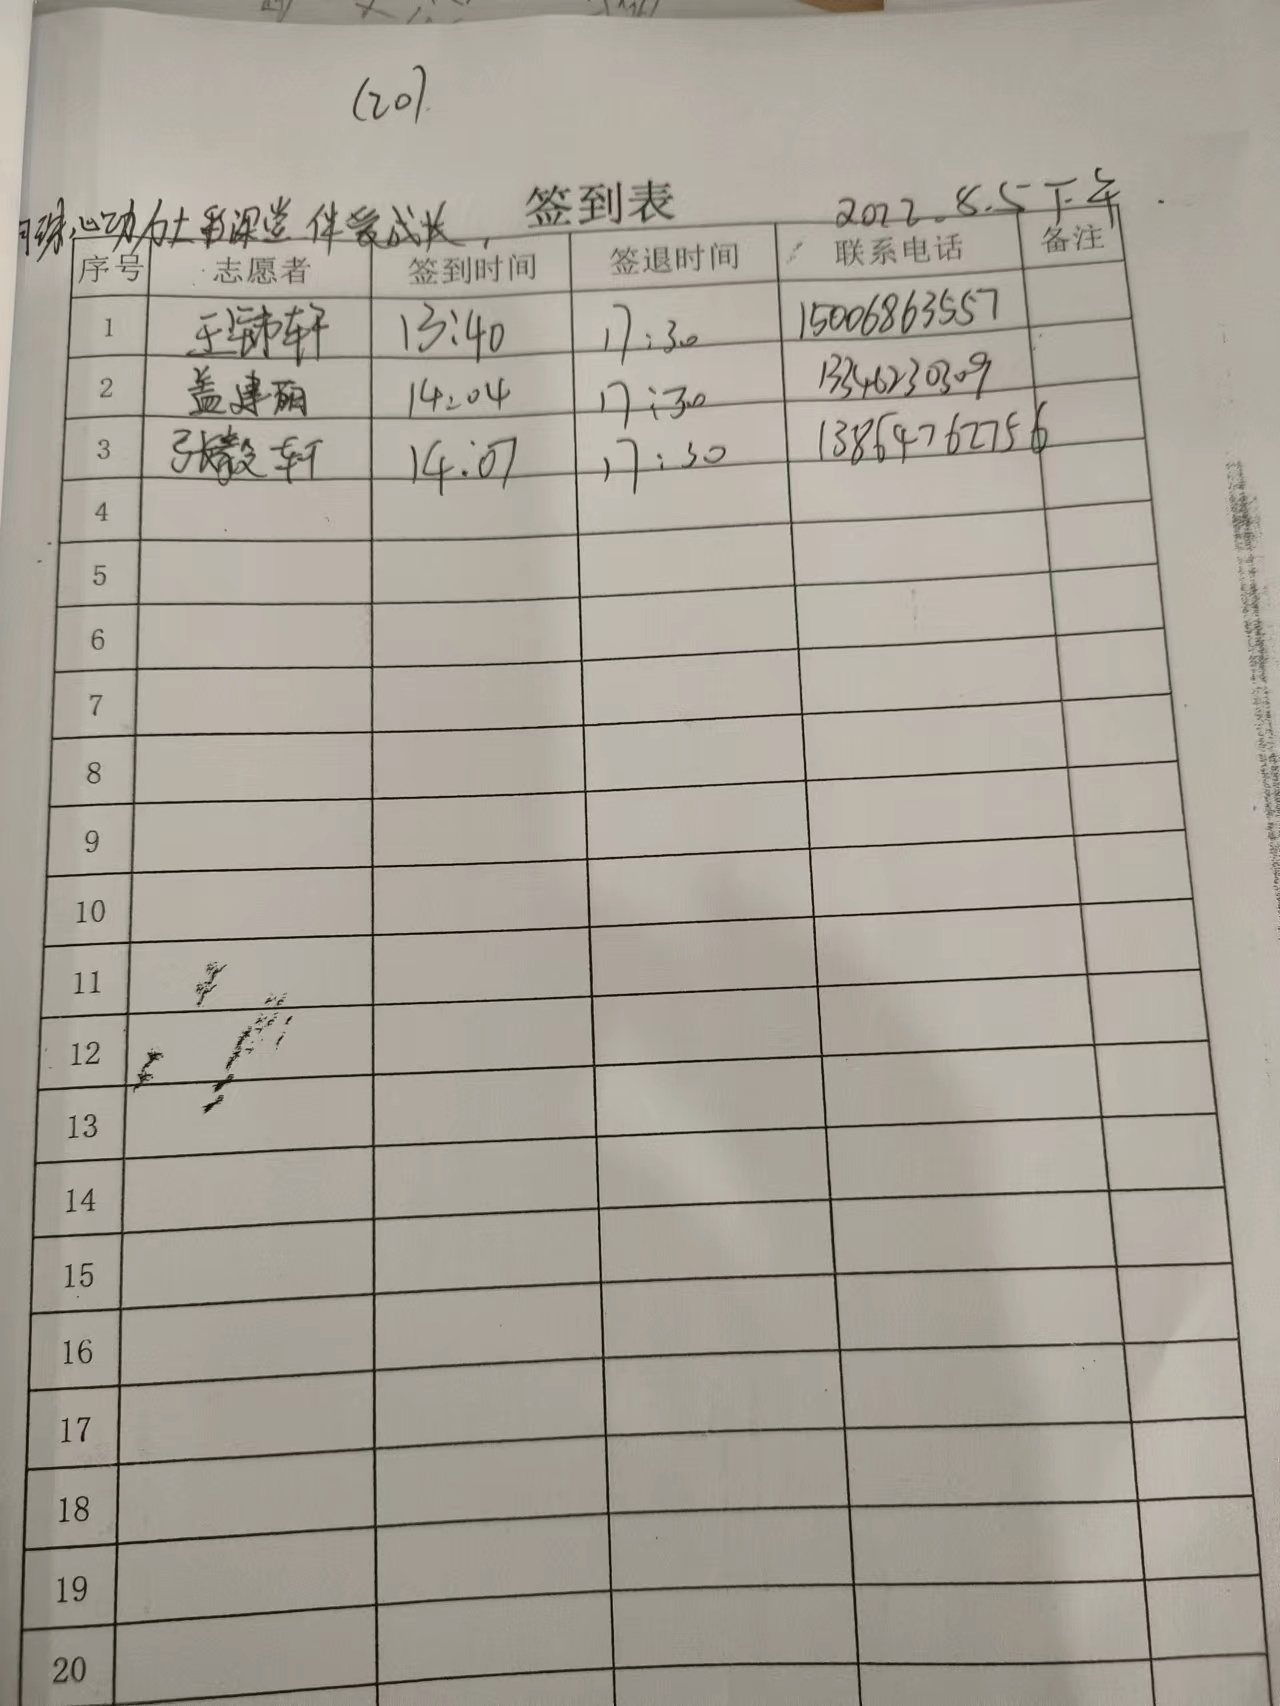 (20)
签到表
心动力七彩课堂 伴爱成长
2022.8.5下午
序号 志愿者 签到时间 签退时间 联系电话 备注
1 轩 13:40 17:30 15006863557
2 盖建丽 14:04 17:30 13346230309
3 张毅轩 14:07 17:30 13864762756
4
5
6
7
8
9
10
11
12
13
14
15
16
17
18
19
20